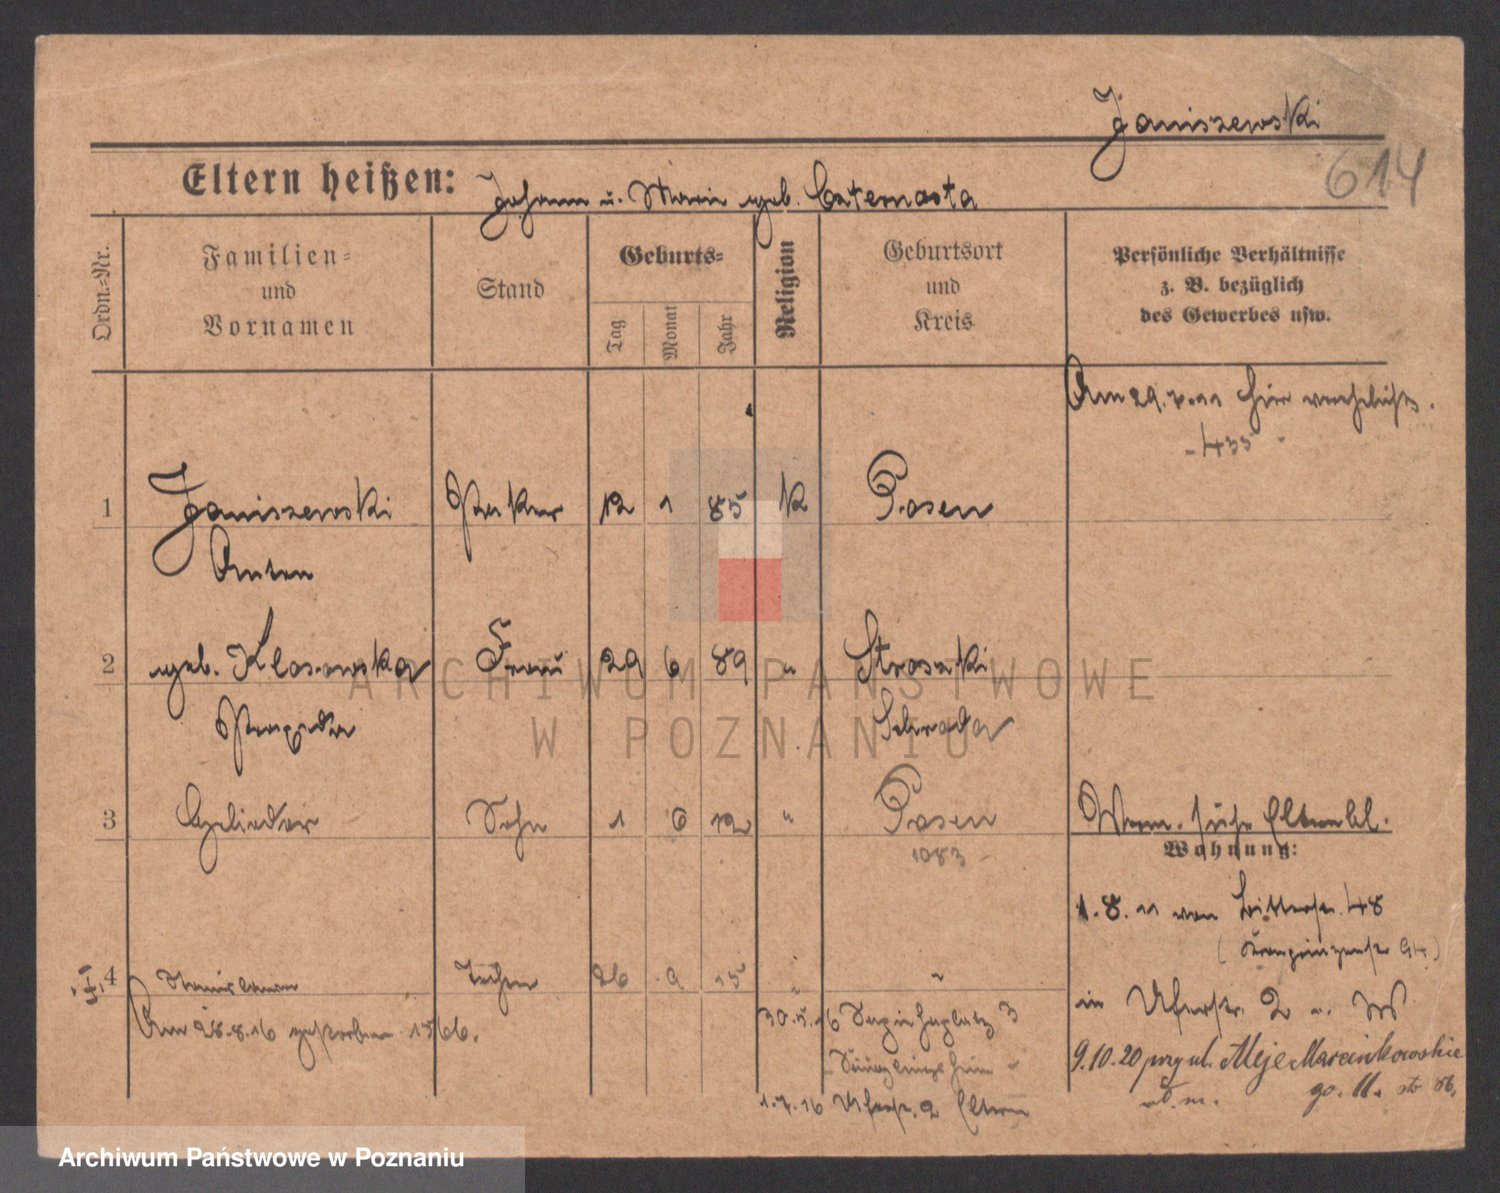 Janiszewski
614
Eltern heißen: Johann u. Maria geb. Czternasta
Ordn.-Nr.
Familien-
und
Vornamen
Stand
Geburts-
Tag
Monat
Jahr
Religion
Geburtsort
und
Kreis
Persönliche Verhältnisse
z. B. bezüglich
des Gewerbes usw.
Am 29. 7. 11 hier verehelicht.
- 435 -
1 Janiszewski 12 1 85 K Posen
Anton
2 geb. Klosowska Frau 29 6 89 "
Schroda
3 Sohn 1 6 12 " Posen
1083
Wohnung:
1. 8. 11 von 48
4 Tochter 26 9 15 " "
Am 28.8.16 gestorben 1566.
in Uferstr. 2 a. W
30.5.16 3
Säuglingsheim
1.7.16 Uferstr. 2 Eltern
9.10.20 przy ul. Aleje Marcinkowskie
go. 11.
ARCHIWUM PAŃSTWOWE
W POZNANIU
Archiwum Państwowe w Poznaniu